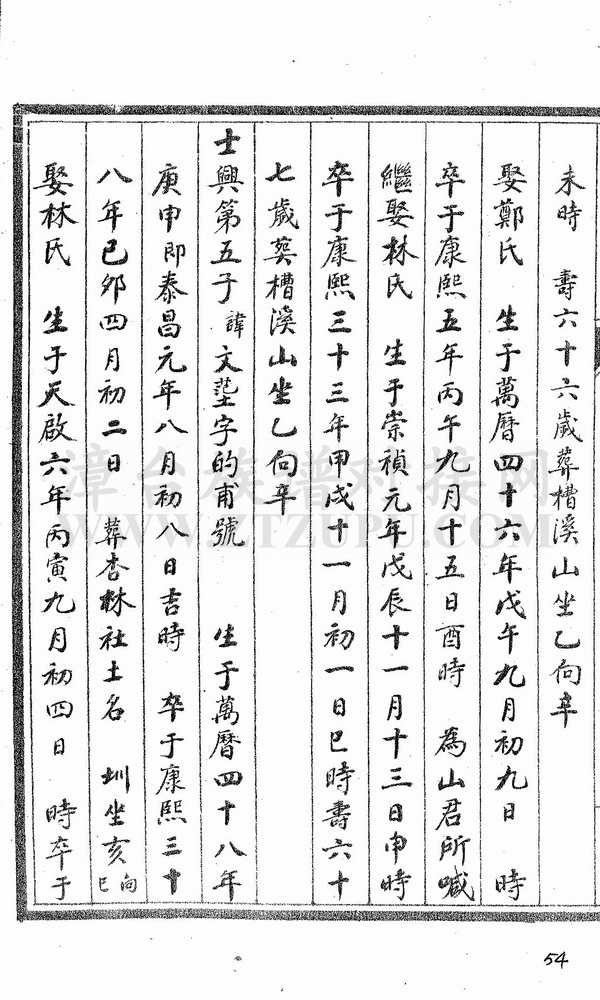 未時　壽六十六歲葬槽溪山坐乙向辛
娶鄭氏　生于萬曆四十六年戊午九月初九日　時
卒于康熙五年丙午九月十五日酉時　為山君所喊
繼娶林氏　生于崇禎元年戊辰十一月十三日申時
卒于康熙三十三年甲戌十一月初一日巳時壽六十
七歲葬槽溪山坐乙向辛
士興第五子諱文字的甫號　生于萬曆四十八年
庚申即泰昌元年八月初八日吉時　卒于康熙三十
八年己卯四月初二日　葬杏林社土名　圳坐亥向巳
娶林氏　生于天啟六年丙寅九月初四日　時卒于
54
漳台族谱对接网
WWW.ZTZUPU.COM